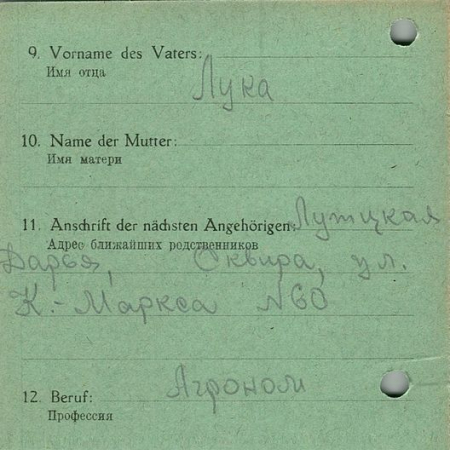 9. Vorname des Vaters:
Имя отца
Лука
10. Name der Mutter:
Имя матери
11. Anschrift der nächsten Angehörigen: Лутцкая
Адрес ближайших родственников
Дарья, Сквира, ул.
К.-Маркса N60
Агроном
12. Beruf:
Профессия